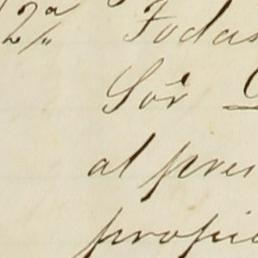 2ª Todas
Sõr
al pres
propie